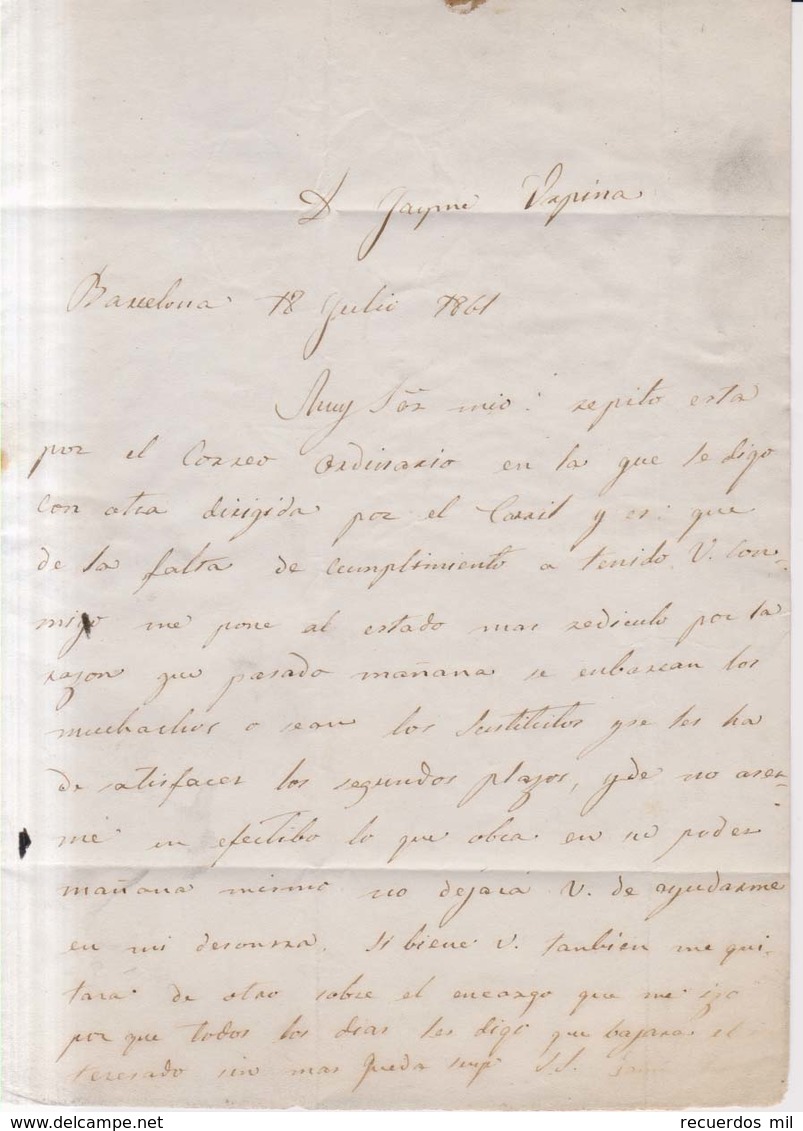 D Jayme Espina
Barcelona 18 Julio 1861
Muy Sór mio: repito esta
por el Correo Ordinario en la que le digo
con otra dirigida por el Carril y es: que
de la falta de cumplimiento a tenido V. con-
migo me pone al estado mas rediculo por la
razon que pasado mañana se enbarcan los
muchachos o sean los Sustitutos y se les ha
de satisfacer los segundos plazos, y de no aser-
me en efectibo lo que obra en su poder
mañana mismo no dejará V. de ayudarme
en mi desonrra. Si biene V. tanbien me qui-
tara de otro sobre el encargo que me izo
por que todos los dias les digo que bajara el
teresado sin mas queda SS.
recuerdos mil
www.delcampe.net